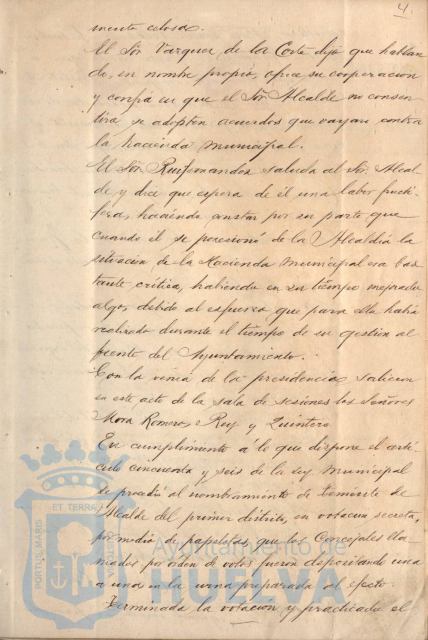 4.
mente celosa.
El Sor Vazquez de la Corte dijo que hablan
do, en nombre propio, ofrece su cooperacion
y confia en que el Sor Alcalde no consen
tirá, se adopten acuerdos que vayan contra
la hacienda municipal.
El Sor Ruifernandez saluda al Sor Alcal
de y dice que espera de él una labor fructi
fera, haciendo constar por su parte que
cuando él se posesionó de la Alcaldia la
situación de la Hacienda Municipal era bas
tante critica, habiendo en su tiempo mejorado
algo, debido al esfuerzo que para ello habia
realizado durante el tiempo de su gestión al
frente del Ayuntamiento.
Con la venia de la presidencia, salieron
en este acto de la sala de sesiones los Señores
Mora Romero, Rey y Quintero
En cumplimiento á lo que dispone el arti
culo cincuenta y seis de la ley Municipal
se procedió al nombramiento de teniente de
Alcalde del primer distrito, en votacion secreta,
por medio de papeletas, que los Concejales lla
mados por orden de votos fueron depositando una
a una en la urna preparada al efecto.
Terminada la votacion y practicado el
PORTUS MARIS ET TERRAE
Ayuntamiento de
HUELVA